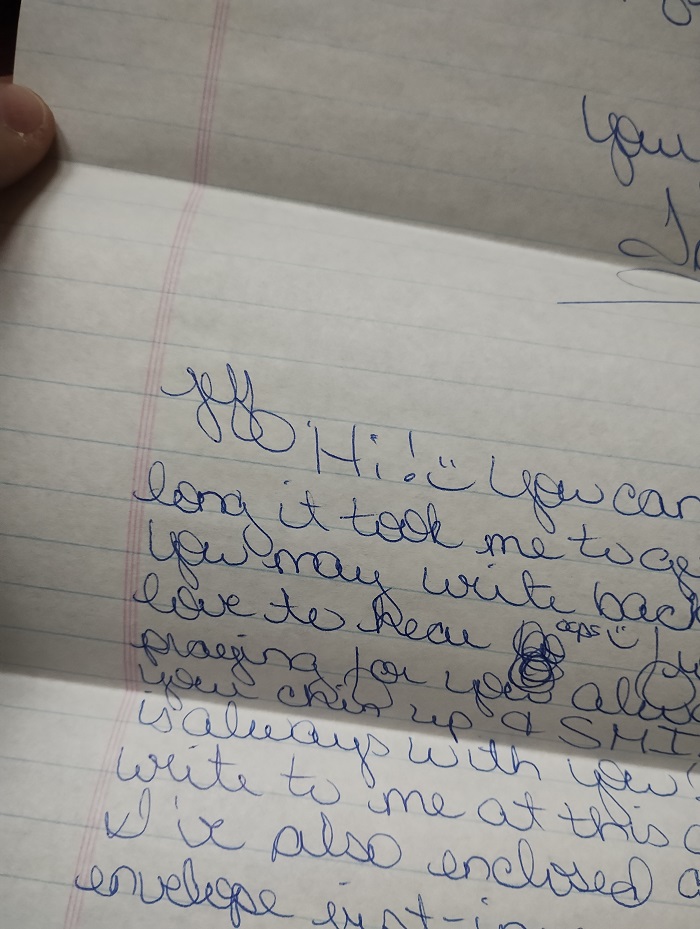 your
Jeff Hi! You can
long it took me to ge
you may write back
love to hear oops
praying for you alwa
your chin up & SMI
is always with you!
write to me at this a
I've also enclosed a
envelope just-in